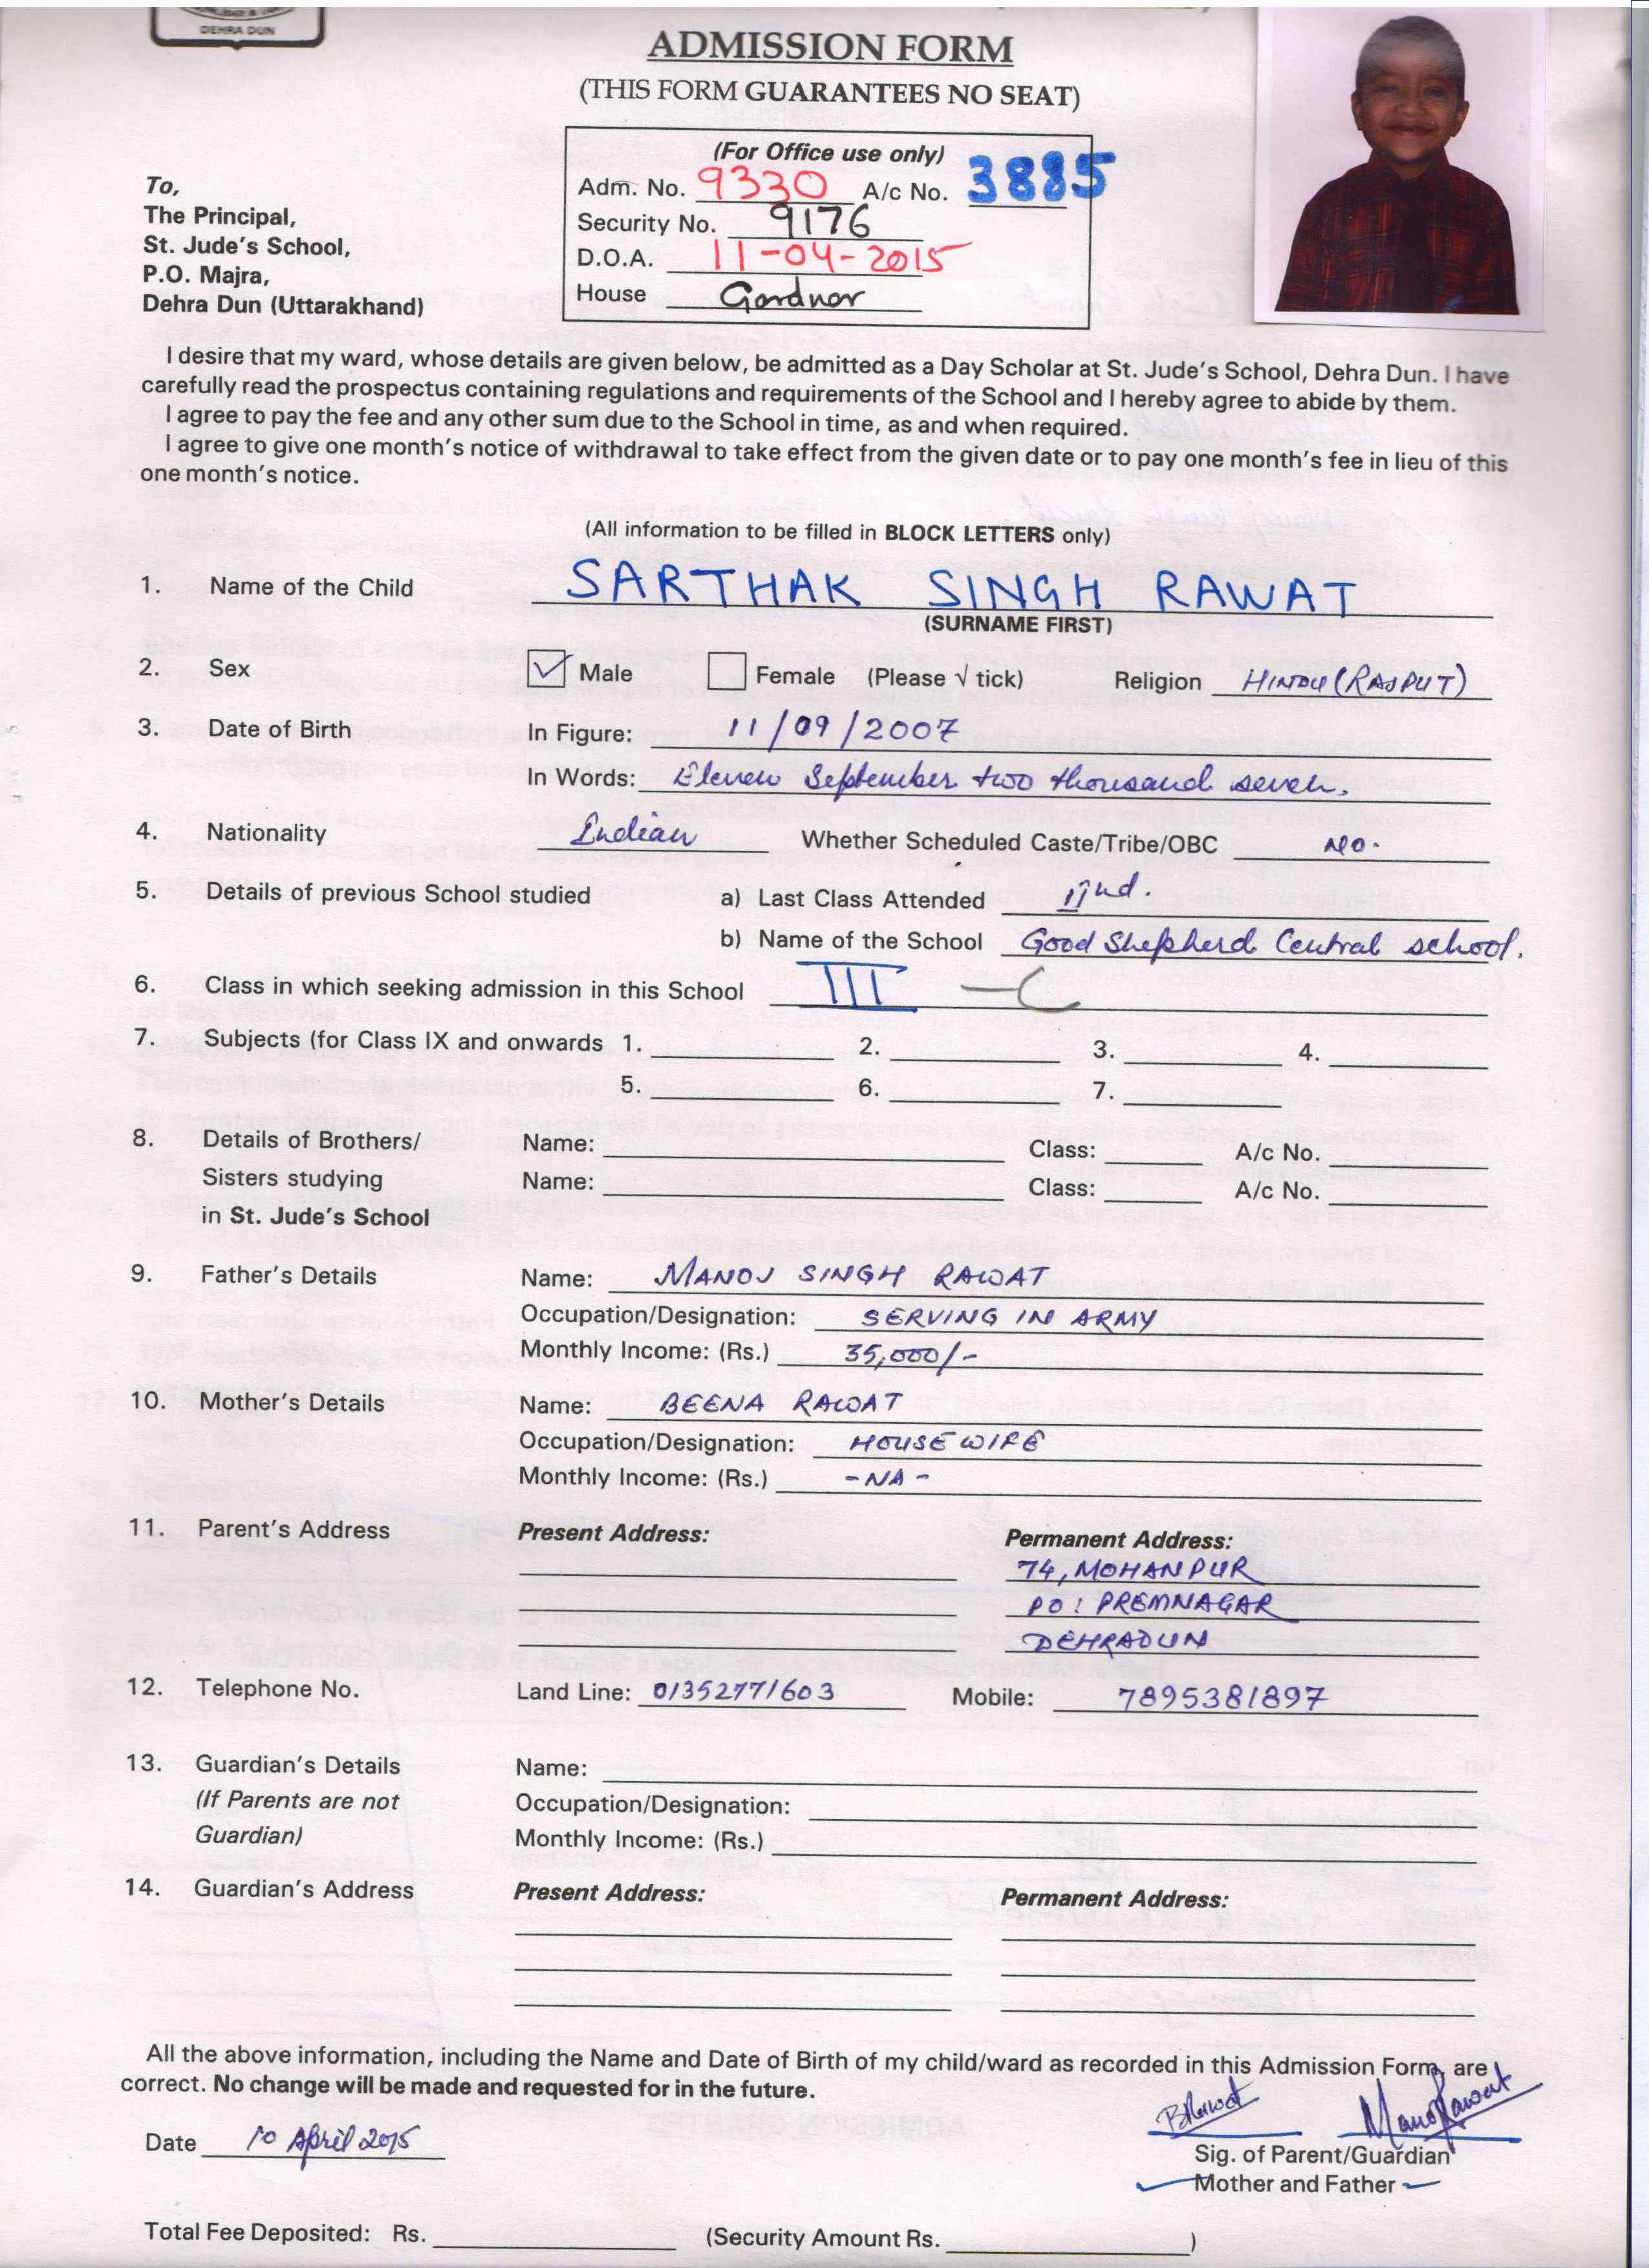 DEHRA DUN
ADMISSION FORM
(THIS FORM GUARANTEES NO SEAT)
(For Office use only)
Adm. No. 9330 A/c No. 3885
Security No. 9176
D.O.A. 11-04-2015
House Gardnor
To,
The Principal,
St. Jude's School,
P.O. Majra,
Dehra Dun (Uttarakhand)
I desire that my ward, whose details are given below, be admitted as a Day Scholar at St. Jude's School, Dehra Dun. I have
carefully read the prospectus containing regulations and requirements of the School and I hereby agree to abide by them.
I agree to pay the fee and any other sum due to the School in time, as and when required.
I agree to give one month's notice of withdrawal to take effect from the given date or to pay one month's fee in lieu of this
one month's notice.
(All information to be filled in BLOCK LETTERS only)
1. Name of the Child SARTHAK SINGH RAWAT
(SURNAME FIRST)
2. Sex Male Female (Please √ tick) Religion HINDU (RAJPUT)
3. Date of Birth In Figure: 11/09/2007
In Words: Eleven September two thousand seven.
4. Nationality Indian Whether Scheduled Caste/Tribe/OBC NO.
5. Details of previous School studied a) Last Class Attended IInd.
b) Name of the School Good Shepherd Central school.
6. Class in which seeking admission in this School III - C
7. Subjects (for Class IX and onwards 1. 2. 3. 4.
5. 6. 7.
8. Details of Brothers/ Name: Class: A/c No.
Sisters studying Name: Class: A/c No.
in St. Jude's School
9. Father's Details Name: MANOJ SINGH RAWAT
Occupation/Designation: SERVING IN ARMY
Monthly Income: (Rs.) 35,000/-
10. Mother's Details Name: BEENA RAWAT
Occupation/Designation: HOUSE WIFE
Monthly Income: (Rs.) - NA -
11. Parent's Address Present Address: Permanent Address:
74, MOHANPUR
PO: PREMNAGAR
DEHRADUN
12. Telephone No. Land Line: 01352771603 Mobile: 7895381897
13. Guardian's Details Name:
(If Parents are not Occupation/Designation:
Guardian) Monthly Income: (Rs.)
14. Guardian's Address Present Address: Permanent Address:
All the above information, including the Name and Date of Birth of my child/ward as recorded in this Admission Form, are
correct. No change will be made and requested for in the future.
Date 10 April 2015
Sig. of Parent/Guardian
Mother and Father
Total Fee Deposited: Rs. (Security Amount Rs. )